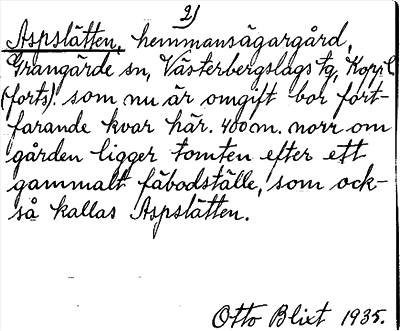 2)
Aspslätten, hemmansägargård,
Grangärde sn, Västerbergslags tg, Kopp. l
(forts). som nu är omgift bor fort-
farande kvar här. 400 m. norr om
gården ligger tomten efter ett
gammalt fäbodställe, som ock-
så kallas Aspslätten.
Otto Blixt 1935.